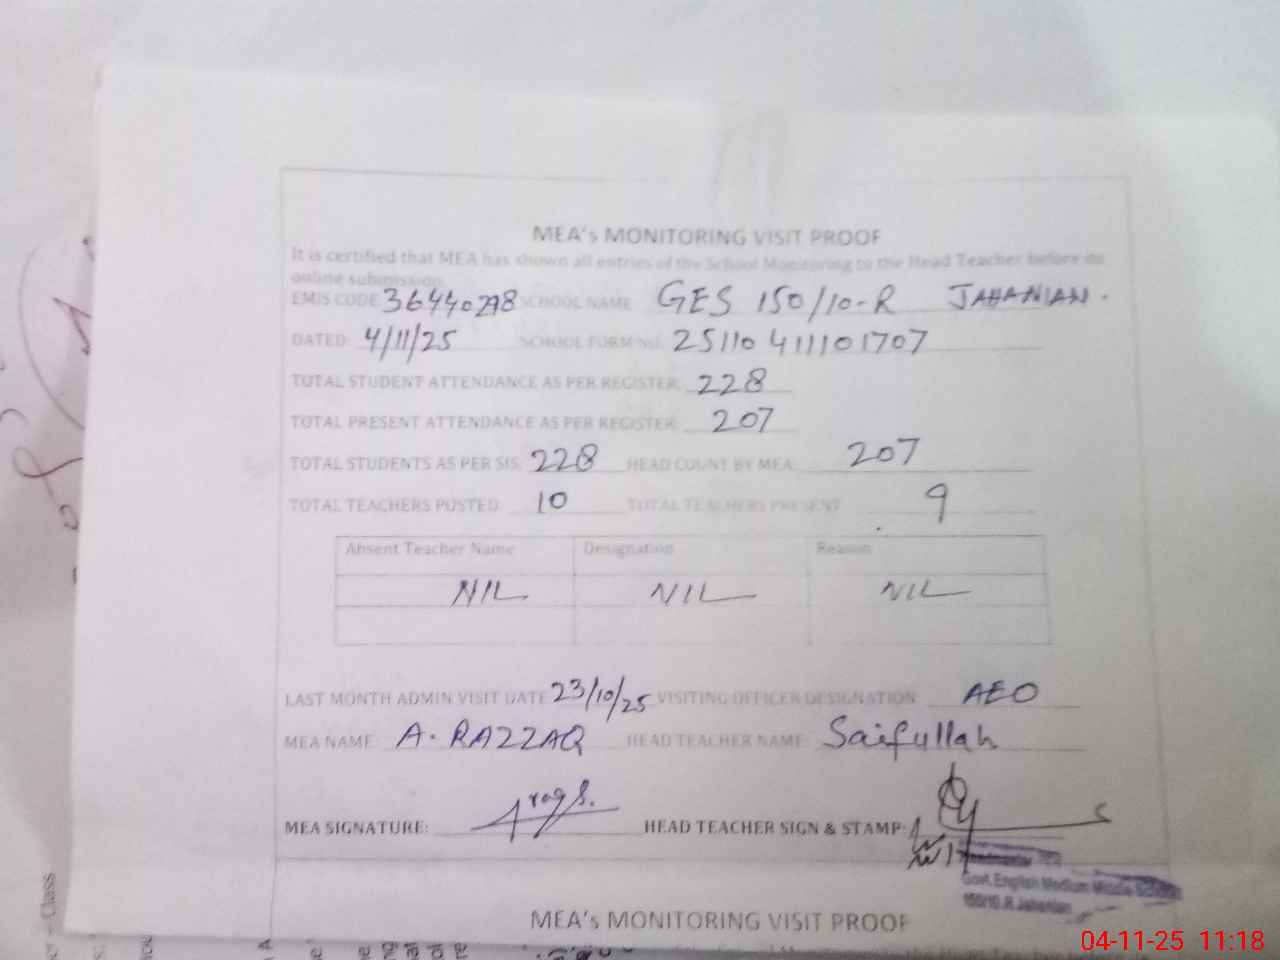 MEA's MONITORING VISIT PROOF
It is certified that MEA has shown all entries of the School Monitoring to the Head Teacher before its
online submission.
EMIS CODE: 36440298 SCHOOL NAME GES 150/10-R JAHANIAN.
DATED: 4/11/25 SCHOOL FORM NO. 25110411101707
TOTAL STUDENT ATTENDANCE AS PER REGISTER: 228
TOTAL PRESENT ATTENDANCE AS PER REGISTER: 207
TOTAL STUDENTS AS PER SIS: 228 HEAD COUNT BY MEA: 207
TOTAL TEACHERS POSTED: 10 TOTAL TEACHERS PRESENT 9
Absent Teacher Name Designation Reason
NIL NIL NIL
LAST MONTH ADMIN VISIT DATE 23/10/25 VISITING OFFICER DESIGNATION AEO
MEA NAME: A. RAZZAQ HEAD TEACHER NAME: Saifullah
MEA SIGNATURE: HEAD TEACHER SIGN & STAMP:
Headmaster
Govt. English Medium Middle School
150/10.R Jahanian
MEA's MONITORING VISIT PROOF
04-11-25 11:18